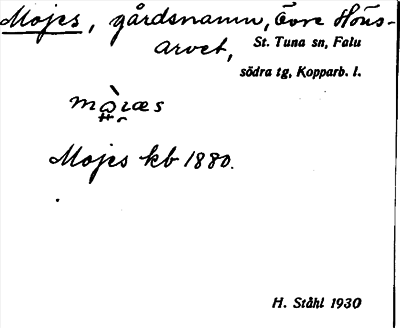 Mojes, gårdsnamn, Övre Hus-
arvet, St. Tuna sn, Falu
södra tg, Kopparb. l.
Mojes kb 1880.
H. Ståhl 1930